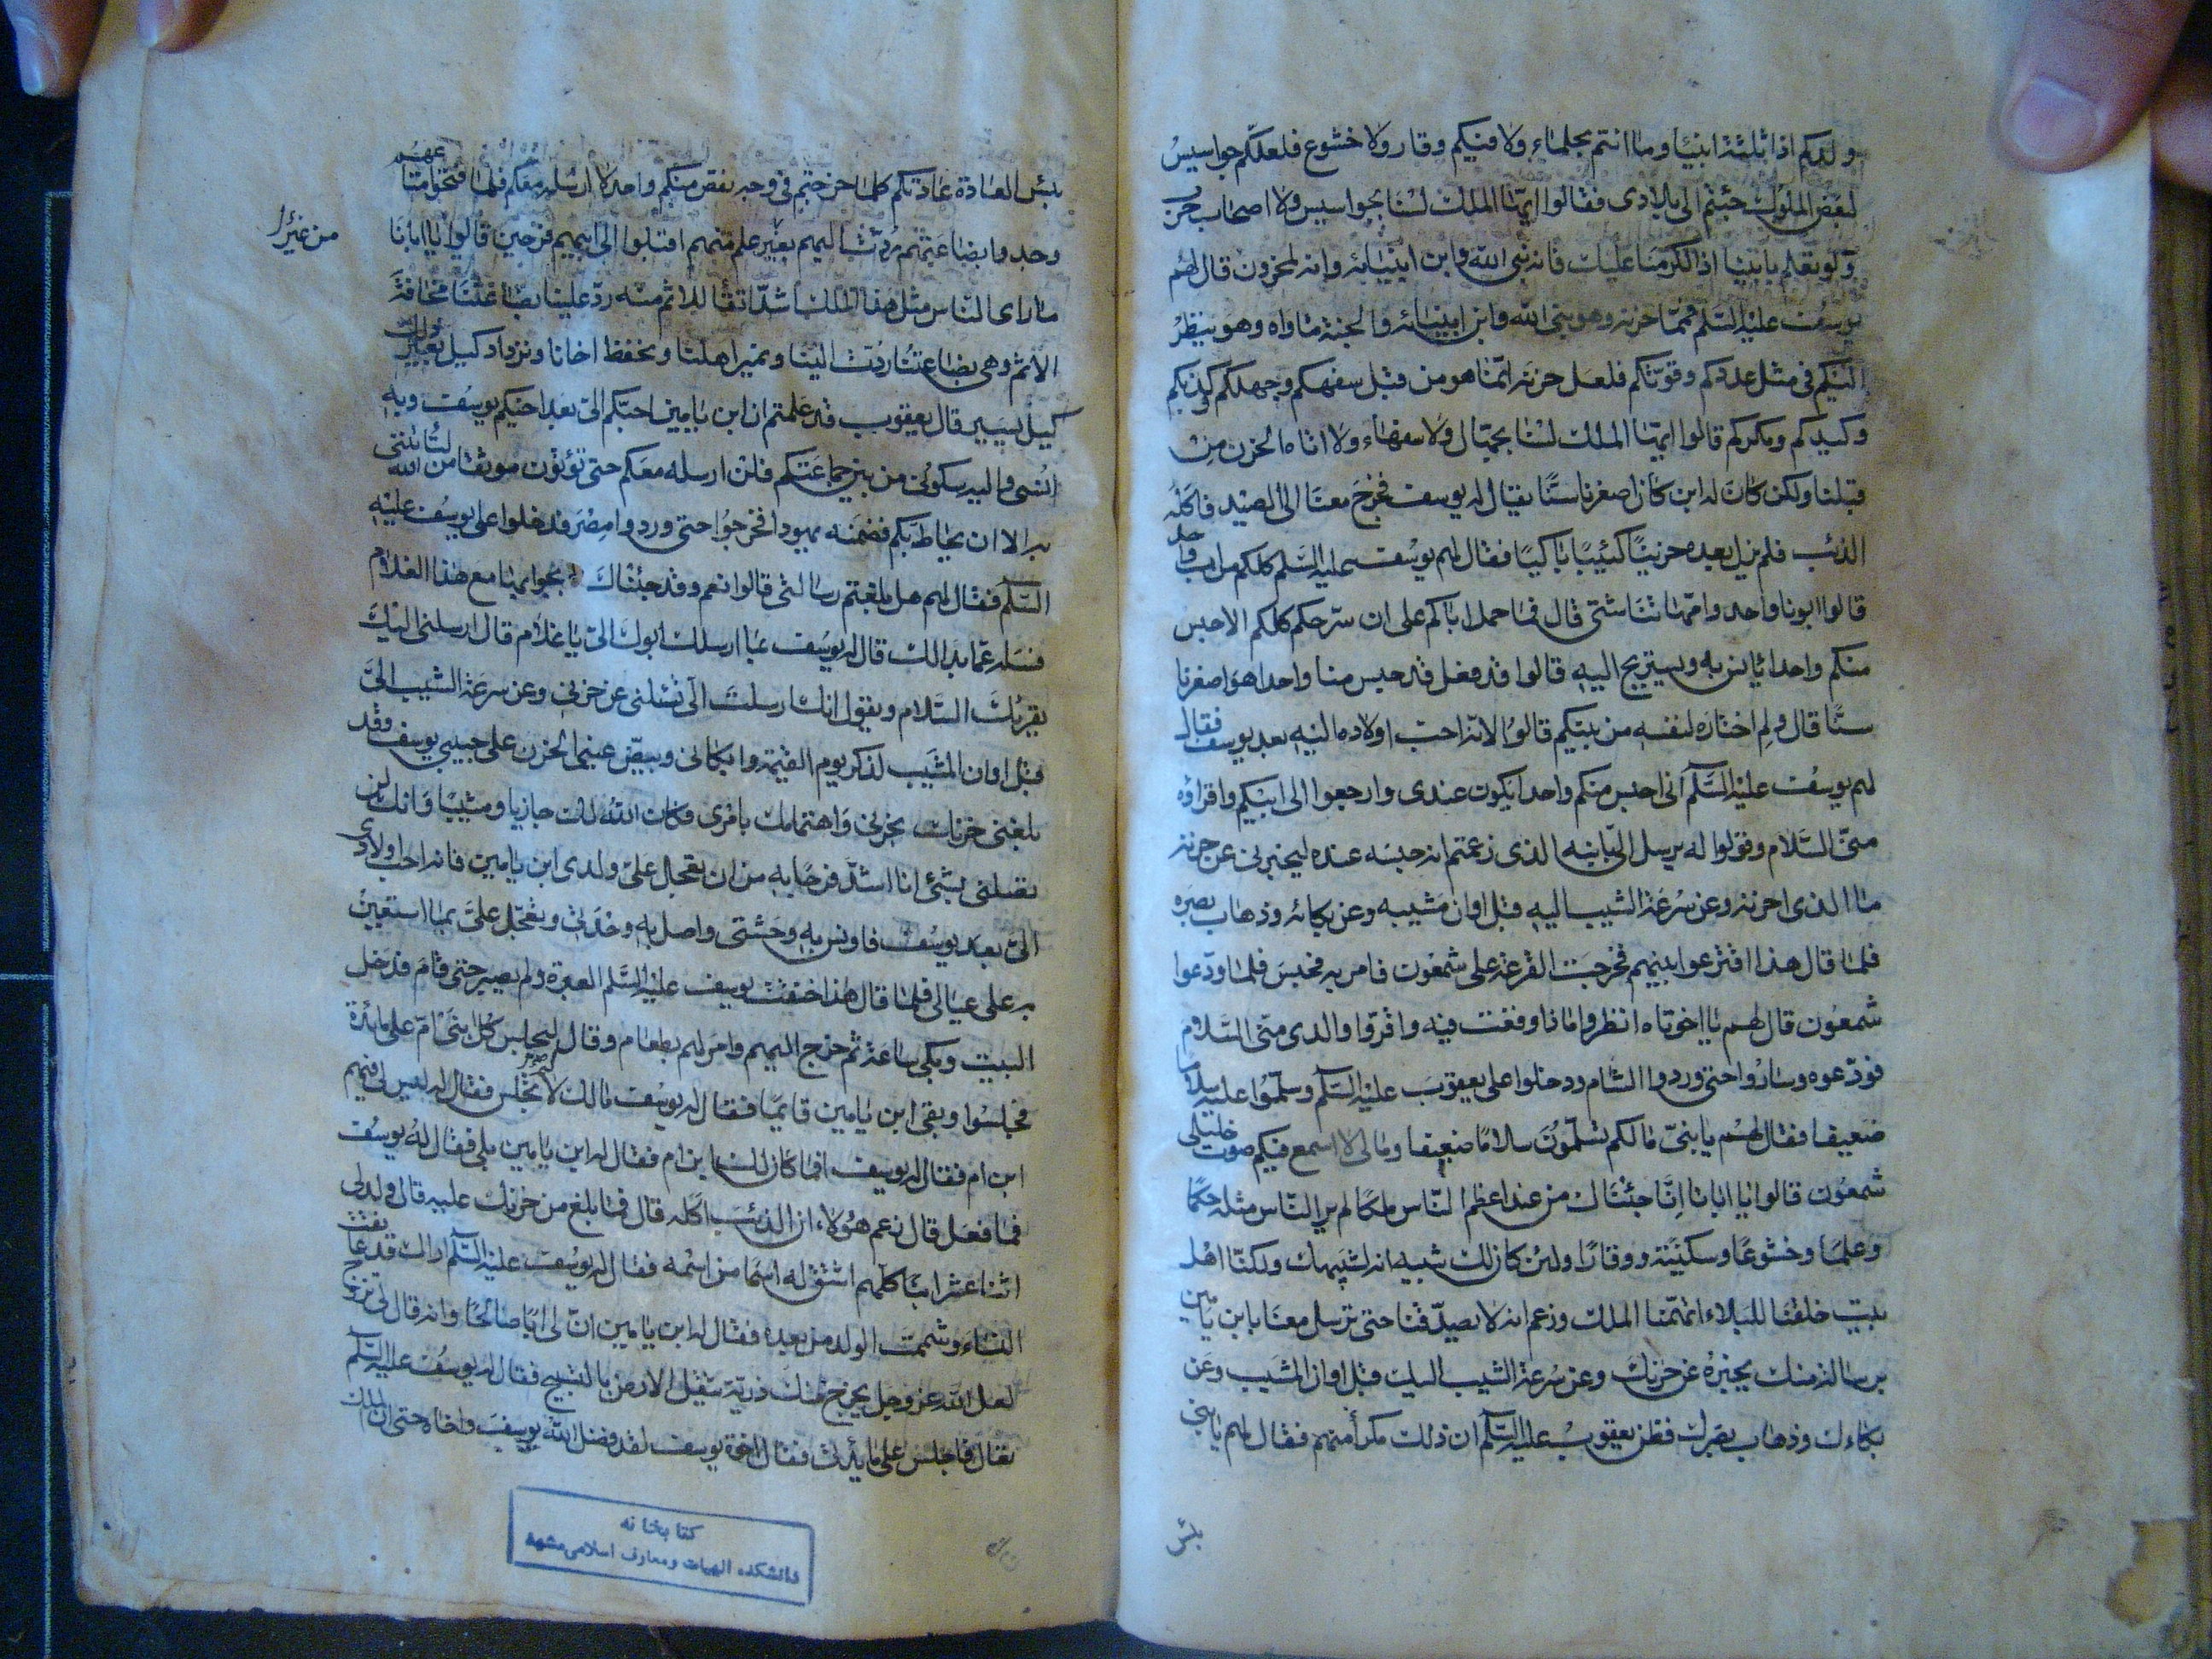 ولدكم اذا ثلثة انبيا وما انتم بحلماء ولا فيكم وقار ولا خشوع فلعلكم جواسيس
لبعض الملوك جئتم الى بلادى فقالوا ايها الملك لسنا بجواسيس ولا اصحاب حرب
ولو تعلم بابينا اذا لكرمنا عليك فانه نبى الله وابن انبيائه وانه لمحزون قال لهم
يوسف عليه السلم فمما حزنه وهو نبى الله وابن انبيائه والجنة ماواه وهو ينظر
اليكم فى مثل عددكم وقوتكم فلعل حزنه انما هو من قبل سفهكم وجهلكم وكذبكم
وكيدكم ومكركم قالوا ايها الملك لسنا بجهال ولا سفهاء ولا اتاه الحزن من
قبلنا ولكن كان له ابن كان اصغرنا سنا يقال له يوسف فخرج معنا الى الصيد فاكله
الذئب فلم يزل بعده حزينا كئيبا باكيا فقال لهم يوسف عليه السلم كلكم من اب واحد
قالوا ابونا واحد وامهاتنا شتى قال فما حمل اباكم على ان سرحكم كلكم الا حبس
منكم واحدا يانس به ويستريح اليه قالوا قد فعل قد حبس منا واحدا هو اصغرنا
سنا قال ولم اختاره لنفسه من بينكم قالوا لانه احب اولاده اليه بعد يوسف فقال
لهم يوسف عليه السلم انى احبس منكم واحدا يكون عندى وارجعوا الى ابيكم واقراوه
منى السلام وقولوا له يرسل الى بابنه الذى زعمتم انه حبسه عنده ليخبرنى عن حزنه
ما الذى احزنه وعن سرعة الشيب اليه قبل اوان مشيبه وعن بكائه وذهاب بصره
فلما قال هذا اقترعوا بينهم فخرجت القرعة على شمعون فامر به فحبس فلما ودعوا
شمعون قال لهم يا اخوتاه انظروا ماذا وقعت فيه واقروا والدى منى السلام
فودعوه وساروا حتى وردوا الشام ودخلوا على يعقوب عليه السلم وسلموا عليه سلاما
ضعيفا فقال لهم يا بنى ما لكم تسلمون سلاما ضعيفا وما لى لا اسمع فيكم صوت خليلى
شمعون قالوا يا ابانا انا جئناك من عند اعظم الناس ملكا لم ير الناس مثله حكما
وعلما وخشوعا وسكينة ووقارا ولئن كان لك شبيه انه لشبيهك ولكنا اهل
بيت خلقنا للبلاء اتهمنا الملك وزعم انه لا يصدقنا حتى ترسل معنا بابن يامين
برسالة منك يخبره عن حزنك وعن سرعة الشيب اليك قبل اوان المشيب وعن
بكاءك وذهاب بصرك فظن يعقوب عليه السلم ان ذلك مكرا منهم فقال لهم يا بنى
بئس
بئس العادة عادتكم كلما خرجتم فى وجه نقص منكم واحد لا ارسله معكم فلما فتحوا متاعهم
وجدوا بضاعتهم ردت اليهم بغير علم منهم اقبلوا الى ابيهم فرحين قالوا يا ابانا
من غيرا
ما راى الناس مثل هذا الملك اشد اتقا للاثم منه رد علينا بضاعتنا مخافة
الاثم وهى بضاعتنا ردت الينا ونمير اهلنا ونحفظ اخانا ونزداد كيل بعير ذلك
كيل يسير قال يعقوب قد علمتم ان ابن يامين احبكم الى بعد اخيكم يوسف وبه
انسى واليه سكونى من بين جماعتكم فلن ارسله معكم حتى تؤتون موثقا من الله لتأتننى
به الا ان يحاط بكم فضمنه يهودا فخرجوا حتى وردوا مصر فدخلوا على يوسف عليه
السلم فقال لهم هل بلغتم رسالتى قالوا نعم وقد جئناك بجوابها مع هذا الغلام
فسله عما بدا لك قال له يوسف بما ارسلك ابوك الى يا غلام قال ارسلنى اليك
يقرئك السلام ويقول انك ارسلت الى تسئلنى عن حزنى وعن سرعة الشيب الى
قبل اوان المشيب لذكر يوم القيمة وابكانى وبيض عينى الحزن على حبيبى يوسف وقد
بلغنى حزنك بحزنى واهتمامك بامرى فكان الله لك جازيا ومثيبا وانك لن
تصلنى بشئ انا اشد فرحا به من ان تعجل على ولدى ابن يامين فانه احب اولادى
الى بعد يوسف فاونس به وحشتى واصل به وحدتى وتعجل على بما استعين
به على عيالى فلما قال هذا خنقت يوسف عليه السلم العبرة ولم يصبر حتى قام فدخل
البيت وبكى ساعة ثم خرج اليهم وامر لهم بطعام وقال ليجلس كل بنى ام على مائدة
فجلسوا وبقى ابن يامين قائما فقال له يوسف ما لك لا تجلس فقال له ليس لى فيهم
ابن ام فقال له يوسف افما كان لك ابن ام فقال له ابن يامين بلى فقال له يوسف
فما فعل قال زعم هؤلاء ان الذئب اكله قال فما بلغ من حزنك عليه قال ولد لى
اثنا عشر ابنا كلهم اشتق له اسما من اسمه فقال له يوسف عليه السلم اراك قد عانقت
النساء وشممت الولد من بعده فقال له ابن يامين ان لى ابا صالحا وانه قال لى تزوج
لعل الله عز وجل يخرج منك ذرية تثقل الارض بالتسبيح فقال له يوسف عليه السلم
تعال فاجلس على مائدتى فقال اخوة يوسف لقد فضل الله يوسف واخاه حتى ان الملك
كتابخانه
دانشكده الهيات ومعارف اسلامى مشهد